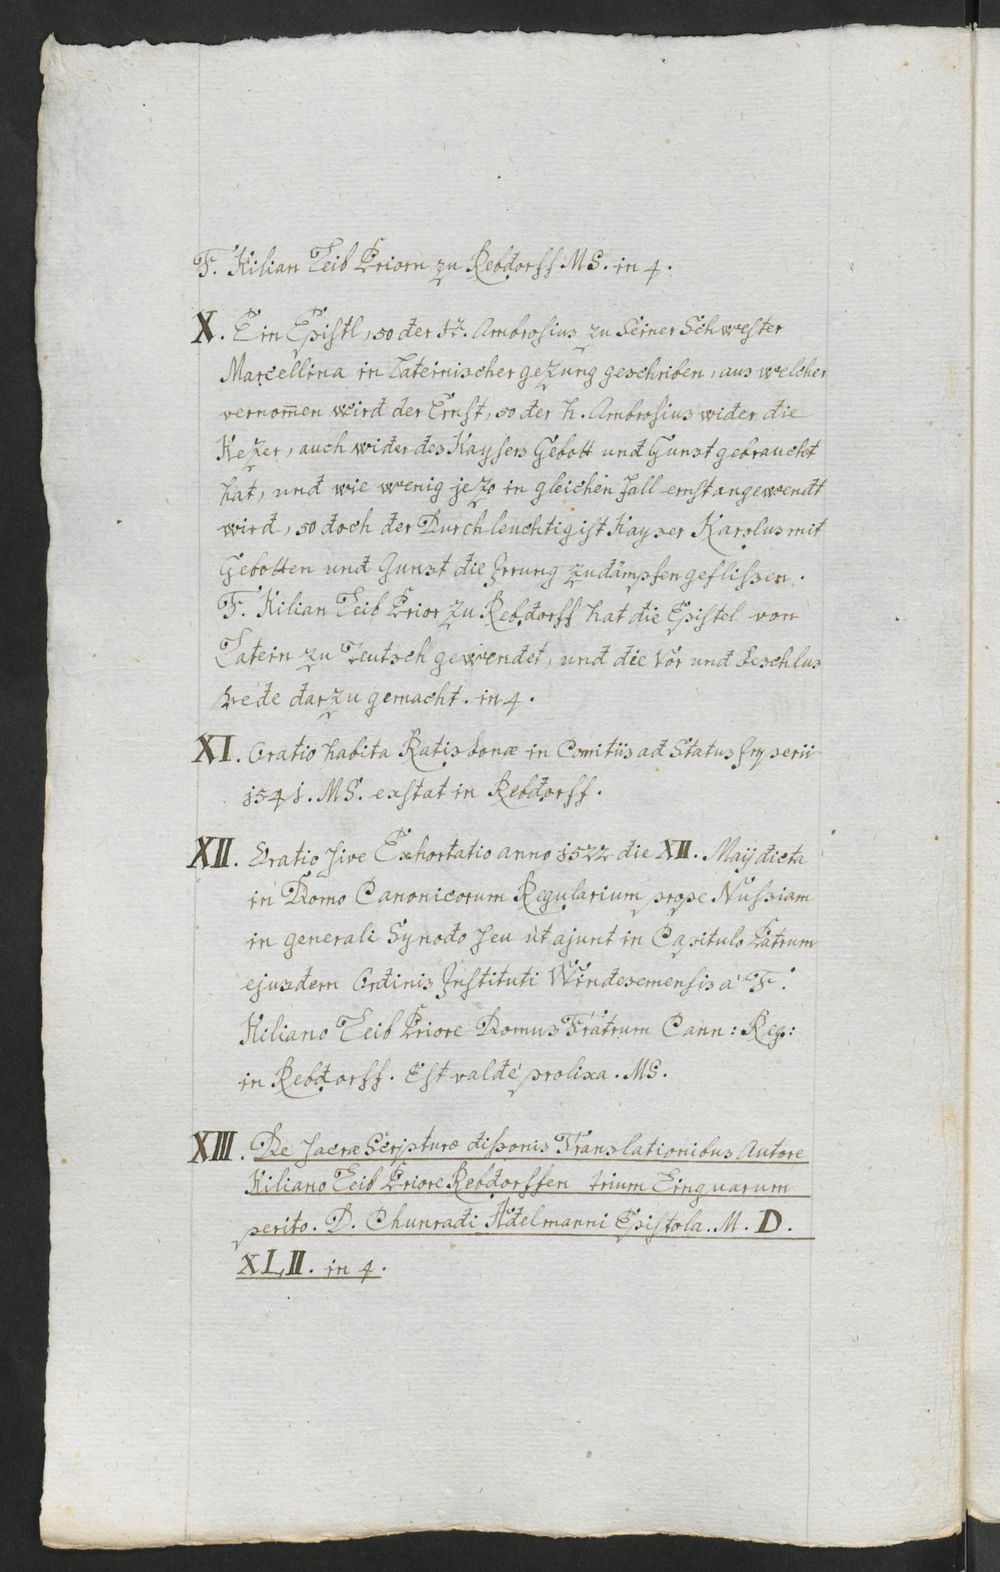 F. Kilian Leib Priorn zu Rebdorff MS. in 4.
X. Ein Epistl, so der H. Ambrosius zu seiner Schwester
Marcellina in Lateinischer gezung geschriben, aus welcher
vernom̄en wird der Ernst, so der h. Ambrosius wider die
Kezer, auch wider des Kaysers Gebott und Gunst gebraucht
hat, und wie wenig jezo in gleichen fall ernst angewendt
wird, so doch der Durchleuchtigist Kayser Karolus mit
Gebotten und Gunst die Irrung zudämpfen geflissen.
F. Kilian Leib Prior zu Rebdorff hat die Epistel von
Latein zu Teutsch gewendet, und die Vor und Beschlus
rede darzu gemacht. in 4.
XI. Oratio habita Ratisbonæ in Comitiis ad Status Imperii
1541. MS. exstat in Rebdorff.
XII. Oratio sive Exhortatio anno 1522 die XII. Maij dicta
in Domo Canonicorum Regularium prope Nussiam
in generali Synodo seu ut ajunt in Capitulo Patrum
ejusdem Ordinis Instituti Windesemensis a F.
Kiliano Leib Priore Domus Fratrum Cann: Reg:
in Rebdorff. Est valde prolixa. MS.
XIII. De sacræ Scripturæ dissonis Translationibus Autore
Kiliano Leib Priore Rebdorffen trium Linguarum
perito. D. Chunradi Adelmanni Epistola. M. D.
XLII. in 4.